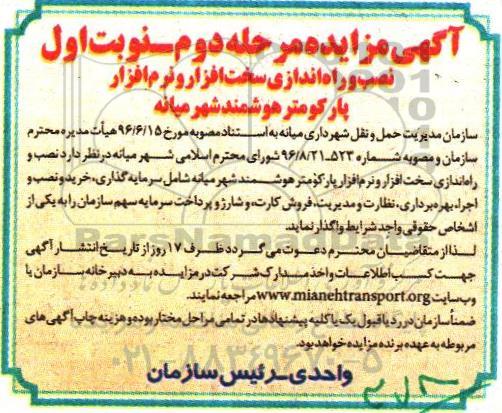 آگهی مزایده مرحله دوم - نوبت اول
نصب و راه‌اندازی سخت‌افزار و نرم‌افزار
پارکومتر هوشمند شهر میانه
سازمان مدیریت حمل و نقل شهرداری میانه به استناد مصوبه مورخ ۹۶/۶/۱۵ هیأت مدیره محترم
سازمان و مصوبه شماره ۵۲۳-۹۶/۸/۲۱ شورای محترم اسلامی شهر میانه در نظر دارد نصب و
راه‌اندازی سخت‌افزار و نرم‌افزار پارکومتر هوشمند شهر میانه شامل سرمایه گذاری، خرید و نصب و
اجرا، بهره‌برداری، نظارت و مدیریت، فروش کارت، و شارژ و پرداخت سرمایه سهم سازمان را به یکی از
اشخاص حقوقی واجد شرایط واگذار نماید.
لذا از متقاضیان محترم دعوت می‌گردد ظرف ۱۷ روز از تاریخ انتشار آگهی
جهت کسب اطلاعات و اخذ مدارک شرکت در مزایده به دبیرخانه سازمان یا
وب‌سایت www.mianehtransport.org مراجعه نمایند.
ضمناً سازمان در رد یا قبول یک یا کلیه پیشنهادها در تمامی مراحل مختار بوده و هزینه چاپ آگهی‌های
مربوطه به عهده برنده مزایده خواهد بود.
واحدی - رئیس سازمان
ParsNamadData
۰۲۱-۸۸۳۴۹۶۷۰-۵